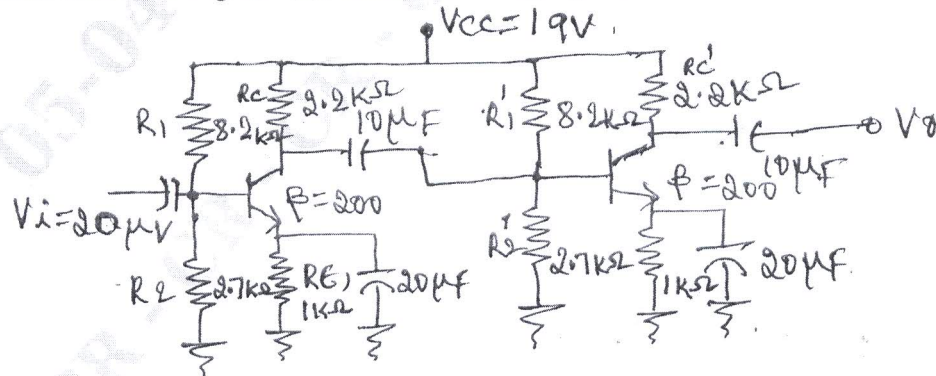 VCC=19V.
R1
8.2KΩ
RC
2.2KΩ
10μF
R1'
8.2KΩ
RC'
2.2KΩ
Vo
10μF
Vi=20μV
β=200
β=200
R2
2.7KΩ
RE1
1KΩ
20μF
R2'
2.7KΩ
1KΩ
20μF.
05-04